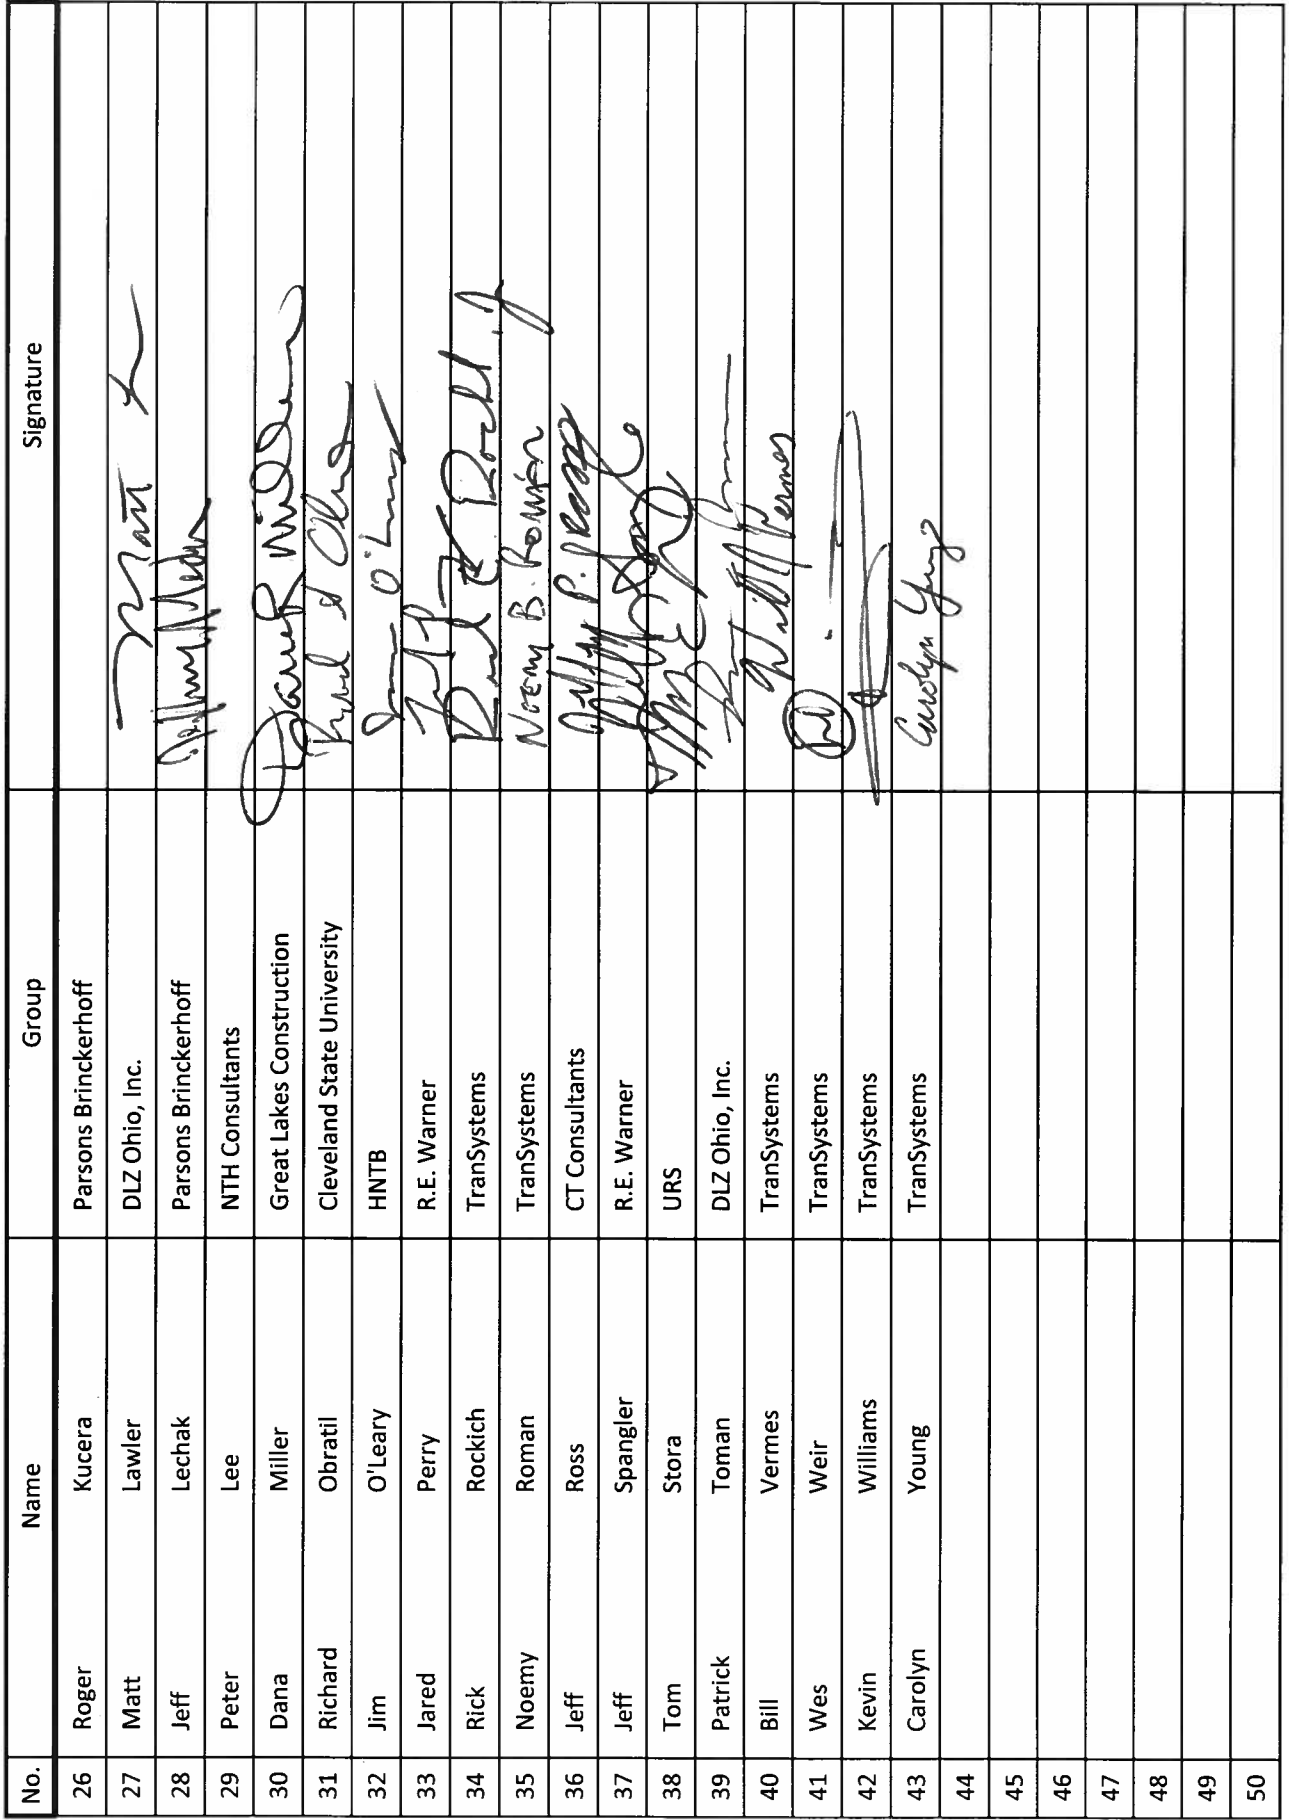 No. Name Group Signature
26 Roger Kucera Parsons Brinckerhoff
27 Matt Lawler DLZ Ohio, Inc. Matt
28 Jeff Lechak Parsons Brinckerhoff
29 Peter Lee NTH Consultants
30 Dana Miller Great Lakes Construction Miller
31 Richard Obratil Cleveland State University
32 Jim O'Leary HNTB
33 Jared Perry R.E. Warner
34 Rick Rockich TranSystems
35 Noemy Roman TranSystems Noemy B. Roman
36 Jeff Ross CT Consultants
37 Jeff Spangler R.E. Warner
38 Tom Stora URS
39 Patrick Toman DLZ Ohio, Inc.
40 Bill Vermes TranSystems Vermes
41 Wes Weir TranSystems
42 Kevin Williams TranSystems
43 Carolyn Young TranSystems Carolyn Young
44
45
46
47
48
49
50